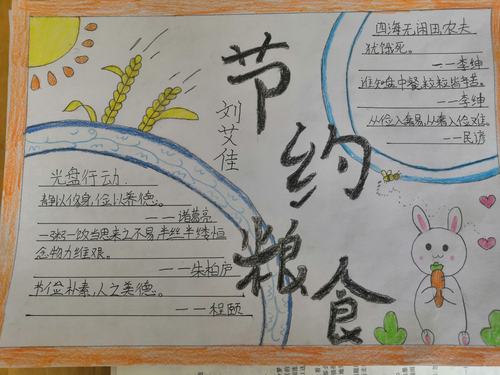 节约粮食
刘艾佳
四海无闲田农夫
犹饿死。
——李绅
谁知盘中餐,粒粒皆辛苦。
——李绅
从俭入奢易,从奢入俭难。
——民谚
光盘行动
静以修身,俭以养德。
——诸葛亮
一粥一饭当思来之不易,半丝半缕恒
念物力维艰。
——朱柏庐
节俭朴素,人之美德。
——程颐